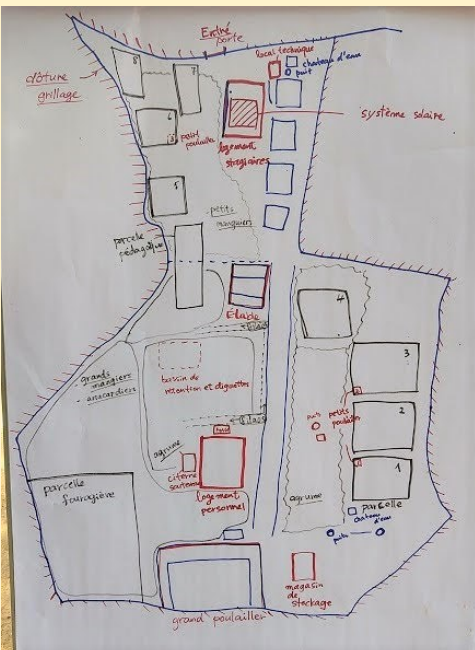 Entré
porte
local technique
chateau d'eau
puit
clôture
grillage
système solaire
8
7
6
petit
poulailler
logement
stagiaires
5
petits
manguiers
parcelle
pédagogique
Étable
4
grands
mangiers
anacardiers
bassin de
rétention et diguettes
3
puits
petits
poulailler
2
agrume
citerne
souterraine
logement
personnel
1
agrume
parcelle
chateau
d'eau
puits
parcelle
fouragière
magasin
de
stockage
grand poulailler